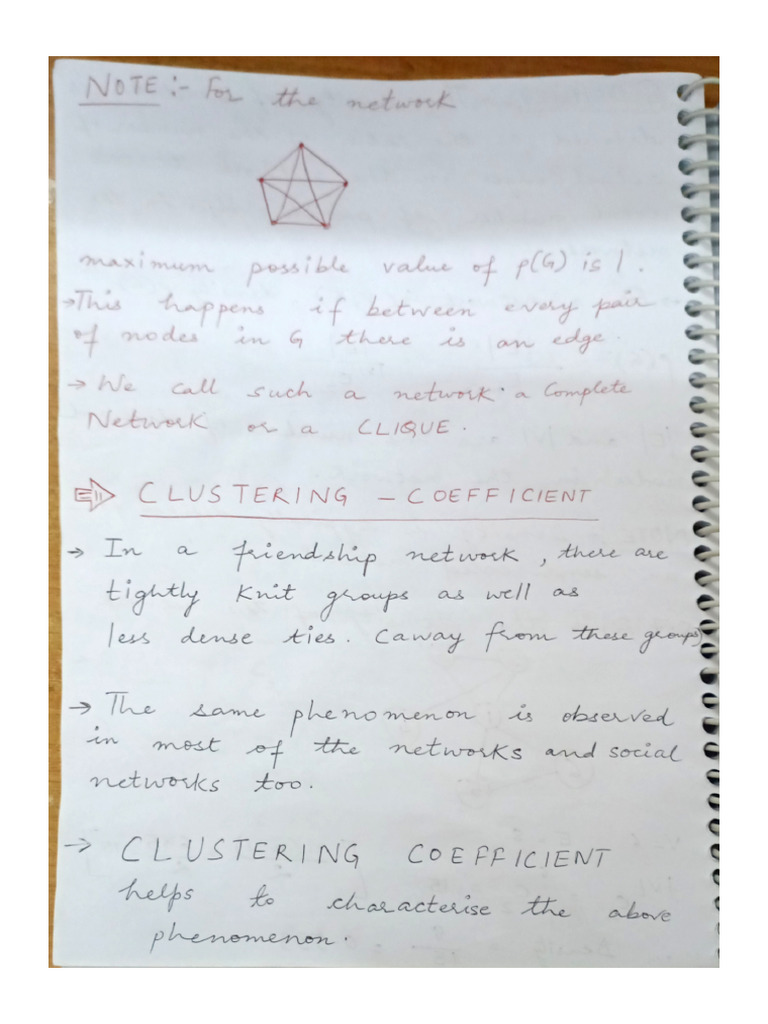 NOTE :- For the network
maximum possible value of ρ(G) is 1.
→This happens if between every pair
of nodes in G there is an edge.
→ We call such a network a Complete
Network or a CLIQUE.
⇒ CLUSTERING - COEFFICIENT
→ In a friendship network, there are
tightly knit groups as well as
less dense ties. (away from these groups)
→ The same phenomenon is observed
in most of the networks and social
networks too.
→ CLUSTERING COEFFICIENT
helps to characterise the above
phenomenon.